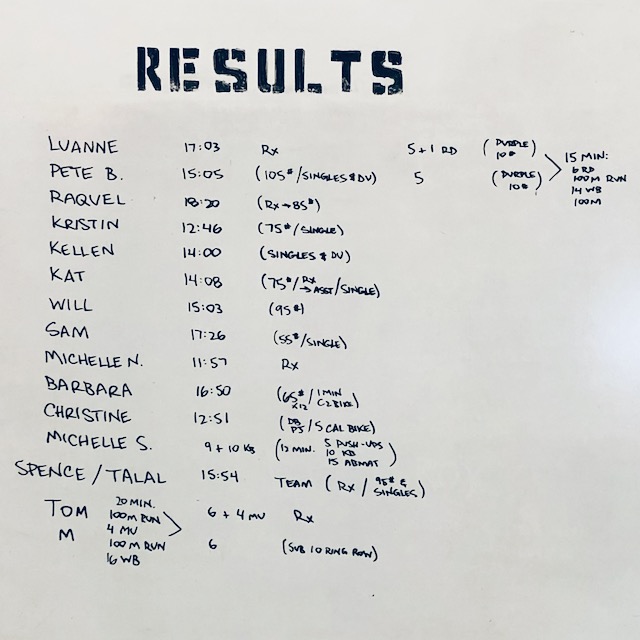 RESULTS
LUANNE 17:03 Rx 5+1 RD (PURPLE 10#)
PETE B. 15:05 (105#/SINGLES & DU) 5 (PURPLE 10#)
15 MIN:
6 RD
100M RUN
14 WB
100M
RAQUEL 18:20 (Rx→85#)
KRISTIN 12:46 (75#/SINGLE)
KELLEN 14:00 (SINGLES & DU)
KAT 14:08 (75#/Rx → ASST/SINGLE)
WILL 15:03 (95#)
SAM 17:26 (55#/SINGLE)
MICHELLE N. 11:57 Rx
BARBARA 16:50 (65# x12/1 MIN C2 BIKE)
CHRISTINE 12:51 (DB PS/5 CAL BIKE)
MICHELLE S. 9 + 10 KB (12 MIN. 5 PUSH-UPS 10 KB 15 ABMAT)
SPENCE/TALAL 15:54 TEAM (Rx/95# & SINGLES)
20 MIN.
100M RUN
4 MU
100M RUN
16 WB
TOM 6 + 4 MU Rx
M 6 (SUB 10 RING ROW)